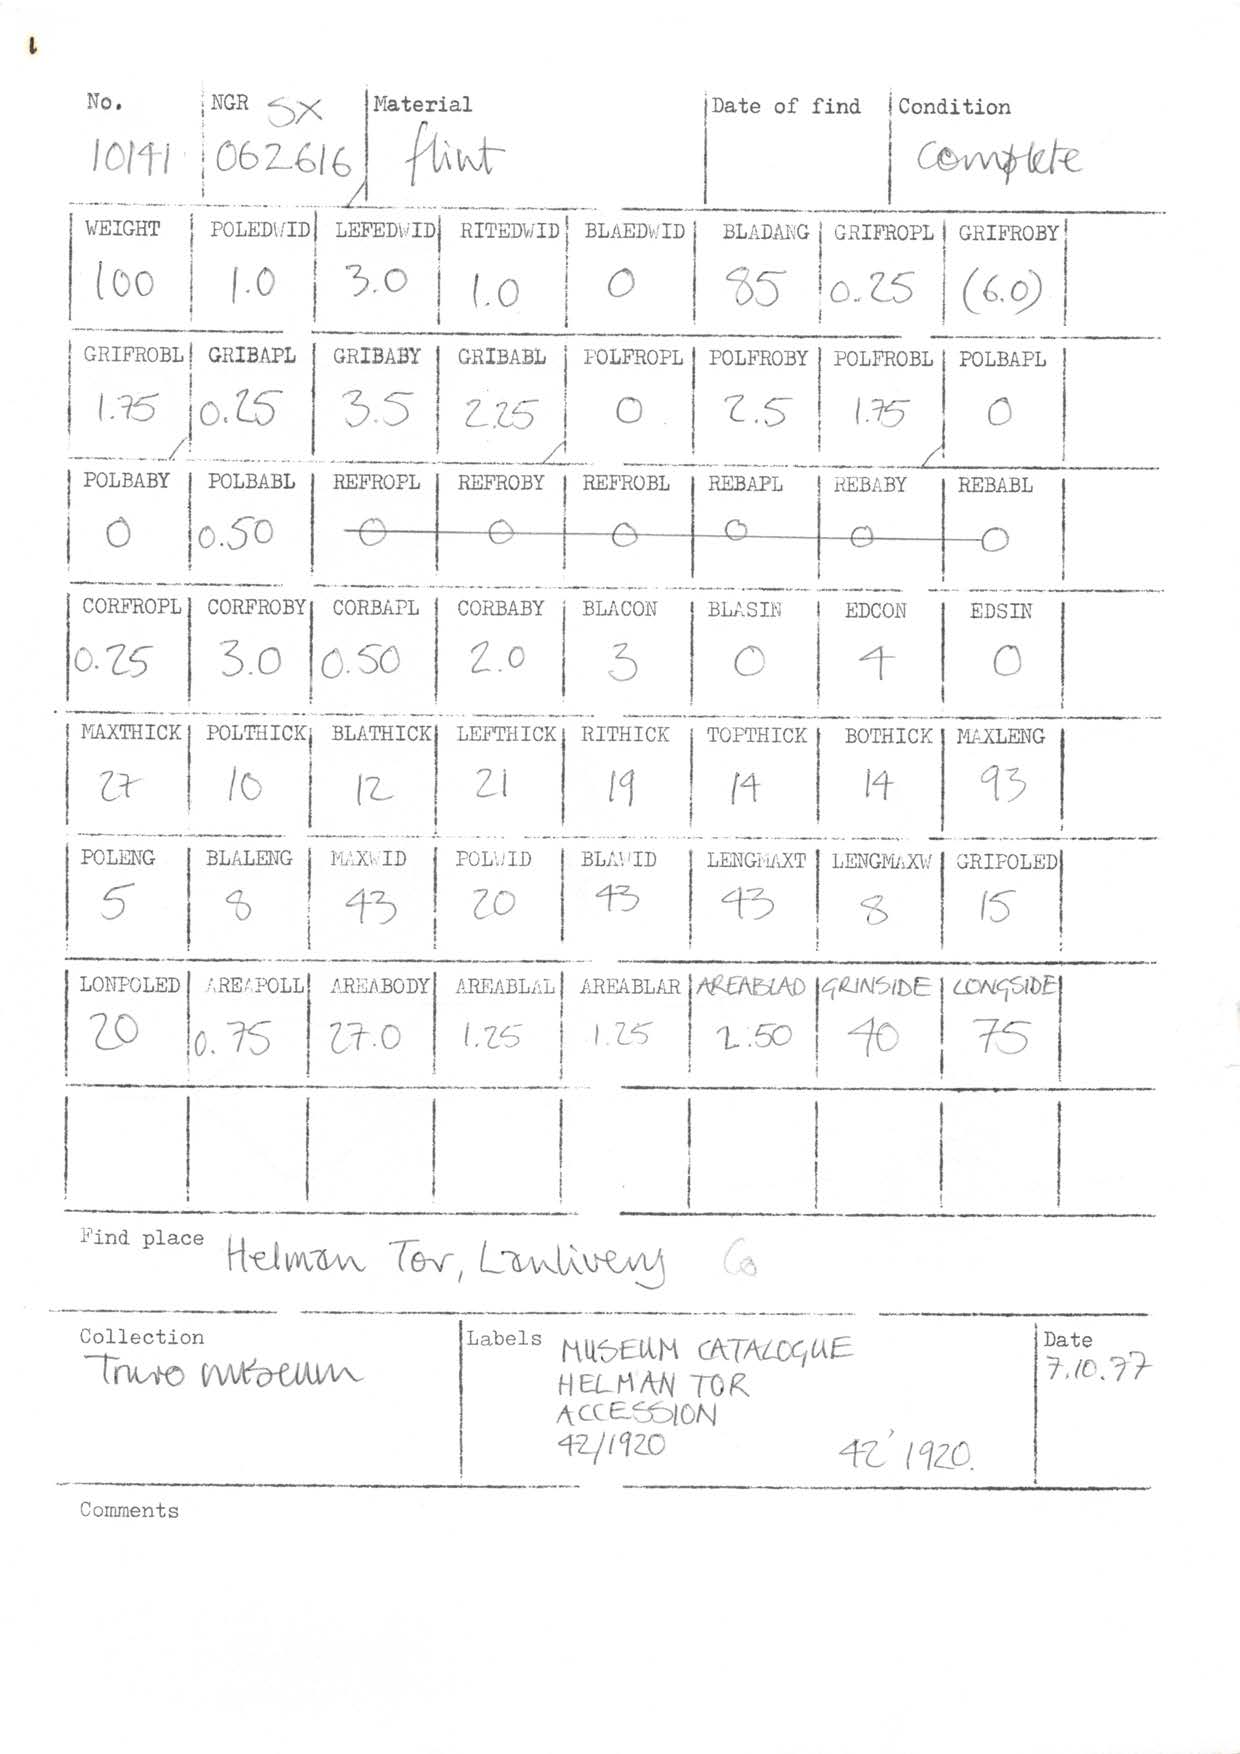 1
No. NGR SX Material Date of find Condition
10141 062616 flint complete
WEIGHT POLEDWID LEFEDWID RITEDWID BLAEDWID BLADANG GRIFROPL GRIFROBY
100 1.0 3.0 1.0 0 85 0.25 (6.0)
GRIFROBL GRIBAPL GRIBABY GRIBABL POLFROPL POLFROBY POLFROBL POLBAPL
1.75 0.25 3.5 2.25 0 2.5 1.75 0
POLBABY POLBABL REFROPL REFROBY REFROBL REBAPL REBABY REBABL
0 0.50 0 0 0 0 0 0
CORFROPL CORFROBY CORBAPL CORBABY BLACON BLASIN EDCON EDSIN
0.25 3.0 0.50 2.0 3 0 4 0
MAXTHICK POLTHICK BLATHICK LEFTHICK RITHICK TOPTHICK BOTHICK MAXLENG
27 10 12 21 19 14 14 93
POLENG BLALENG MAXWID POLWID BLAWID LENGMAXT LENGMAXW GRIPOLED
5 8 43 20 43 43 8 15
LONPOLED AREAPOLL AREABODY AREABLAL AREABLAR AREABLAD GRINSIDE LONGSIDE
20 0.75 27.0 1.25 1.25 2.50 40 75
Find place Helman Tor, Lanlivery Co
Collection Labels MUSEUM CATALOGUE Date
Truro museum HELMAN TOR 7.10.77
ACCESSION
42/1920 42'1920.
Comments